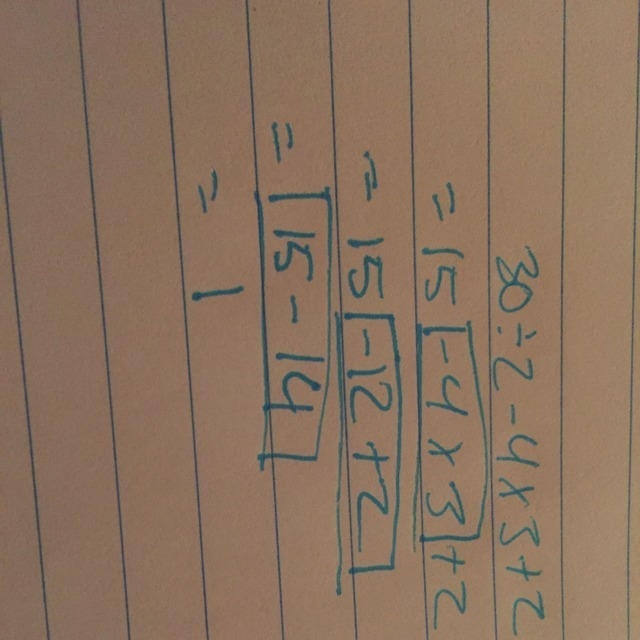 30÷2-4×3+2
=15-4×3+2
=15-12+2
=15-14
=1